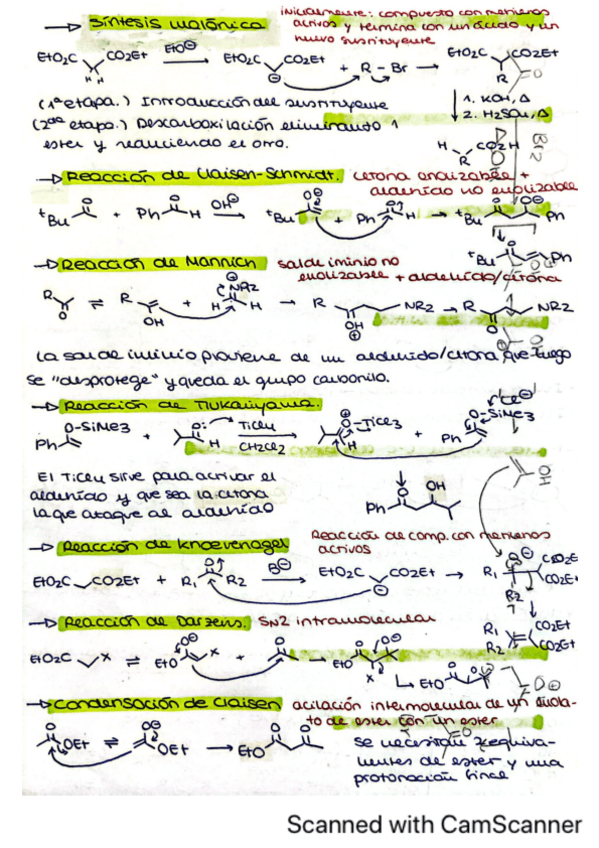 → Síntesis malónica
inicialmente: compuesto con metilenos
activos y termina con un ácido y un
nuevo sustituyente
EtO2C CO2Et H H EtO⊖ → EtO2C CO2Et ⊖ + R-Br → EtO2C CO2Et R
(1ª etapa.) Introducción del sustituyente
1. KOH, Δ
2. H2SO4, Δ
(2da etapa.) Descarboxilación eliminando 1
ester y reduciendo el otro.
H CO2H R
Br2
→ Reacción de Claisen-Schmidt. Cetona enolizable +
aldehído no enolizable
tBu O + Ph O H OH⊖ → tBu O⊖ + Ph O H → tBu O O⊖ Ph
tBu O Ph
→ Reacción de Mannich sal de iminio no
enolizable + aldehído/cetona
R O ⇌ R OH + H ⊕NR2 H → R OH ⊕ NR2 → R O NR2
La sal de iminio proviene de un aldehído/cetona, que luego
se "desprotege" y queda el grupo carbonilo.
→ Reacción de Mukaiyama.
O-SiMe3 Ph + O: H TiCl4 CH2Cl2 → O-TiCl3 H + O-SiMe3 Ph Cl⊖
El TiCl4 sirve para activar el
aldehído y que sea la cetona
la que ataque al aldehído
Ph O OH
OH
→ Reacción de Knoevenagel Reacción de comp. con metilenos
activos
EtO2C CO2Et + R1 O R2 B⊖ → EtO2C CO2Et ⊖ → R1 O⊖ CO2Et CO2Et R2
R1 R2 CO2Et CO2Et
→ Reacción de Darzens. SN2 intramolecular
EtO2C X ⇌ EtO O⊖ X + O → EtO O O⊖ X
EtO O O
→ Condensación de Claisen acilación intermolecular de un enola-
to de ester con un ester
O OEt ⇌ O⊖ OEt → EtO O O
Se necesitan 2 equiva-
lentes de ester y una
protonación final
Scanned with CamScanner